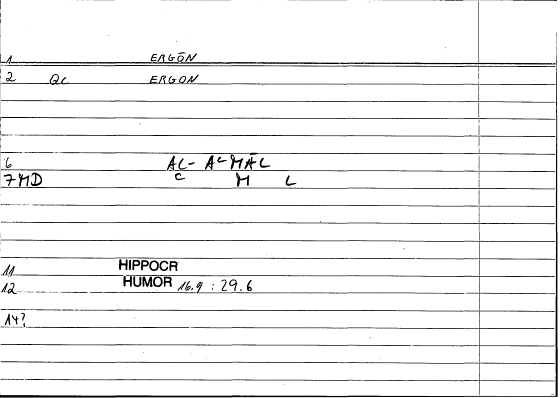 1 ERGŌN
2 QC ERGON
6 AL- ACMĀL
7 MD C M L
11 HIPPOCR
12 HUMOR 16.9 : 29.6
14?